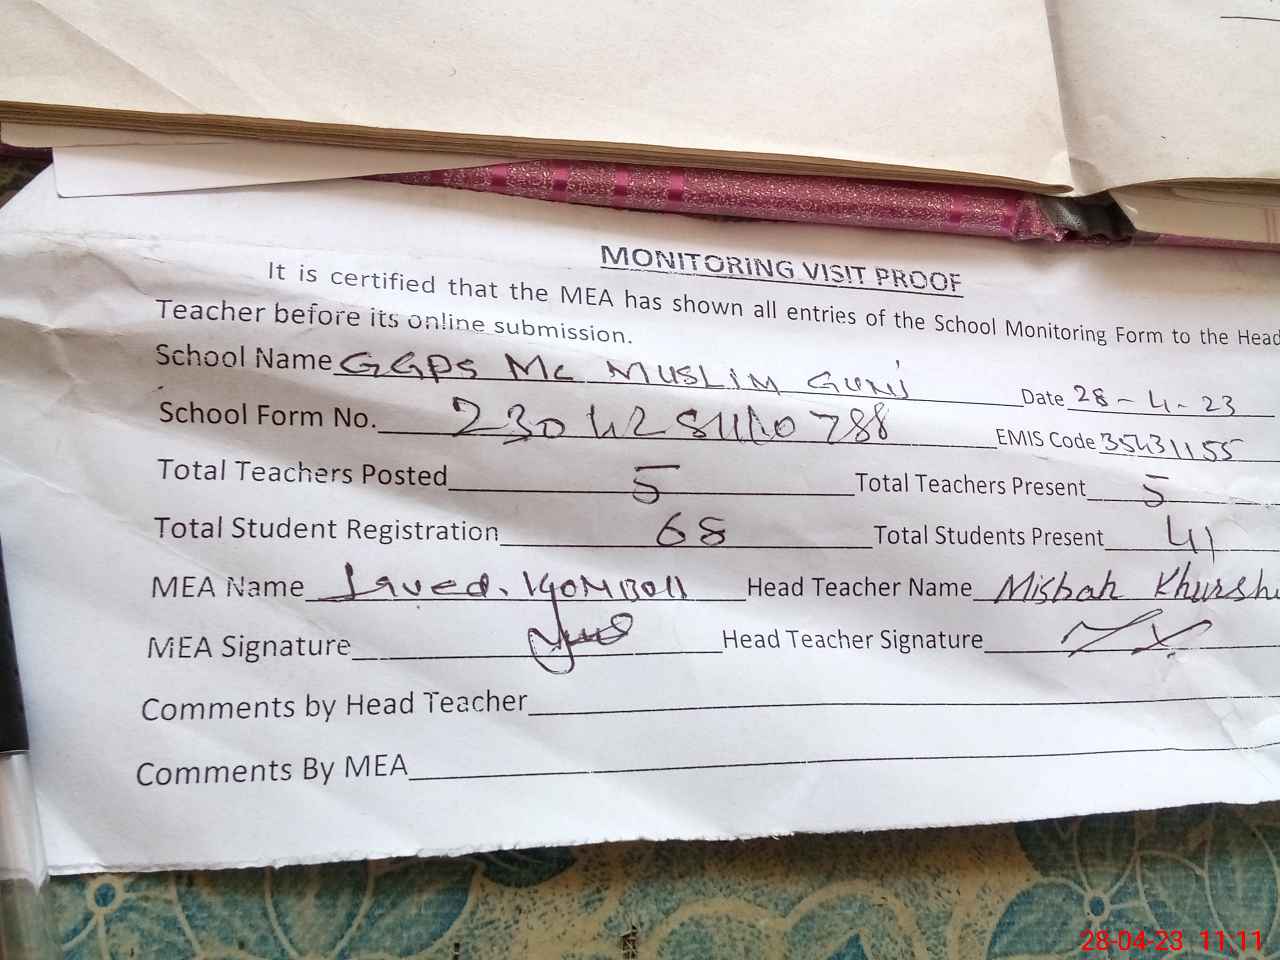 MONITORING VISIT PROOF
It is certified that the MEA has shown all entries of the School Monitoring Form to the Head
Teacher before its online submission.
School Name GGPS Mc MUSLIM GUNJ Date 28-4-23
School Form No. EMIS Code 35431155
Total Teachers Posted 5 Total Teachers Present 5
Total Student Registration 68 Total Students Present 41
MEA Name Javed. Head Teacher Name Misbah Khurshi
MEA Signature Head Teacher Signature
Comments by Head Teacher
Comments By MEA
28-04-23 11:11